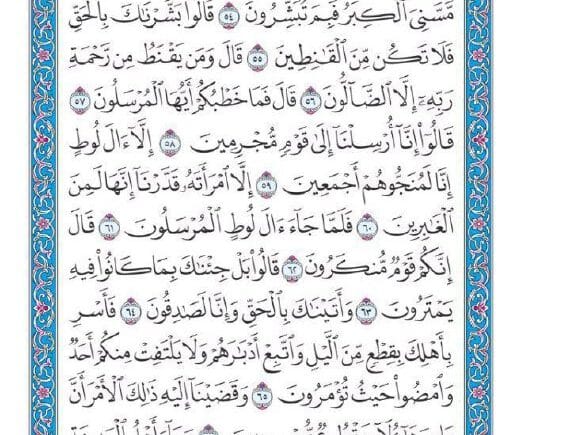 مَّسَّنِىَ ٱلْكِبَرُ فَبِمَ تُبَشِّرُونَ ٥٤ قَالُوا۟ بَشَّرْنَـٰكَ بِٱلْحَقِّ
فَلَا تَكُن مِّنَ ٱلْقَـٰنِطِينَ ٥٥ قَالَ وَمَن يَقْنَطُ مِن رَّحْمَةِ
رَبِّهِۦٓ إِلَّا ٱلضَّآلُّونَ ٥٦ قَالَ فَمَا خَطْبُكُمْ أَيُّهَا ٱلْمُرْسَلُونَ ٥٧
قَالُوٓا۟ إِنَّآ أُرْسِلْنَآ إِلَىٰ قَوْمٍ مُّجْرِمِينَ ٥٨ إِلَّآ ءَالَ لُوطٍ
إِنَّا لَمُنَجُّوهُمْ أَجْمَعِينَ ٥٩ إِلَّا ٱمْرَأَتَهُۥ قَدَّرْنَآ إِنَّهَا لَمِنَ
ٱلْغَـٰبِرِينَ ٦٠ فَلَمَّا جَآءَ ءَالَ لُوطٍ ٱلْمُرْسَلُونَ ٦١ قَالَ
إِنَّكُمْ قَوْمٌ مُّنكَرُونَ ٦٢ قَالُوا۟ بَلْ جِئْنَـٰكَ بِمَا كَانُوا۟ فِيهِ
يَمْتَرُونَ ٦٣ وَأَتَيْنَـٰكَ بِٱلْحَقِّ وَإِنَّا لَصَـٰدِقُونَ ٦٤ فَأَسْرِ
بِأَهْلِكَ بِقِطْعٍ مِّنَ ٱلَّيْلِ وَٱتَّبِعْ أَدْبَـٰرَهُمْ وَلَا يَلْتَفِتْ مِنكُمْ أَحَدٌ
وَٱمْضُوا۟ حَيْثُ تُؤْمَرُونَ ٦٥ وَقَضَيْنَآ إِلَيْهِ ذَٰلِكَ ٱلْأَمْرَ أَنَّ